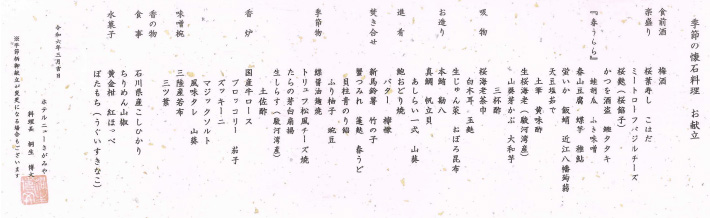 季節の懐石料理　お献立
食前酒　梅酒
楽盛り　桜葉寿し　こはだ
ミートローフバジルチーズ
桜麩（桜餡子）
かつを酒盗　鰹タタキ
蛙胡瓜　ふき味噌
『春うらら』　春山豆腐　螺芋　稚鮎
蛍いか　飯蛸　近江八幡蒟蒻
天豆塩茹で
土筆　黄味酢
生桜海老（駿河湾産）
山葵芽かぶ　大和芋
三杯酢
吸物　桜海老茶巾
白木耳　玉麩
生じゅん菜　おぼろ昆布
お造り　本鮪　勘八
真鯛　帆立貝
あしらい一式　山葵
進肴　鮑おどり焼
バター　檸檬
焚き合せ　新馬鈴薯　竹の子
蟹つみれ　蓬麩　春うど
貝柱青のり餡
ふり柚子　豌豆
季節物　螺醤油麹焼
トリュフ松風チーズ焼
たらの芽白扇揚
生しらす（駿河湾産）
土佐酢
香炉　国産牛ロース
ブロッコリー　茄子
ズッキーニ
マジックソルト
風味タレ　山葵
味噌椀　三陸産若布
三ツ葉
香の物
食事　石川県産こしひかり
ちりめん山椒
水菓子　黄金柑　紅ほっぺ
ぼたもち（うぐいすきなこ）
令和六年三月吉日
ホテルニューさがみや
料理長　桐生　博文
※季節柄御献立が変更になる場合もございます